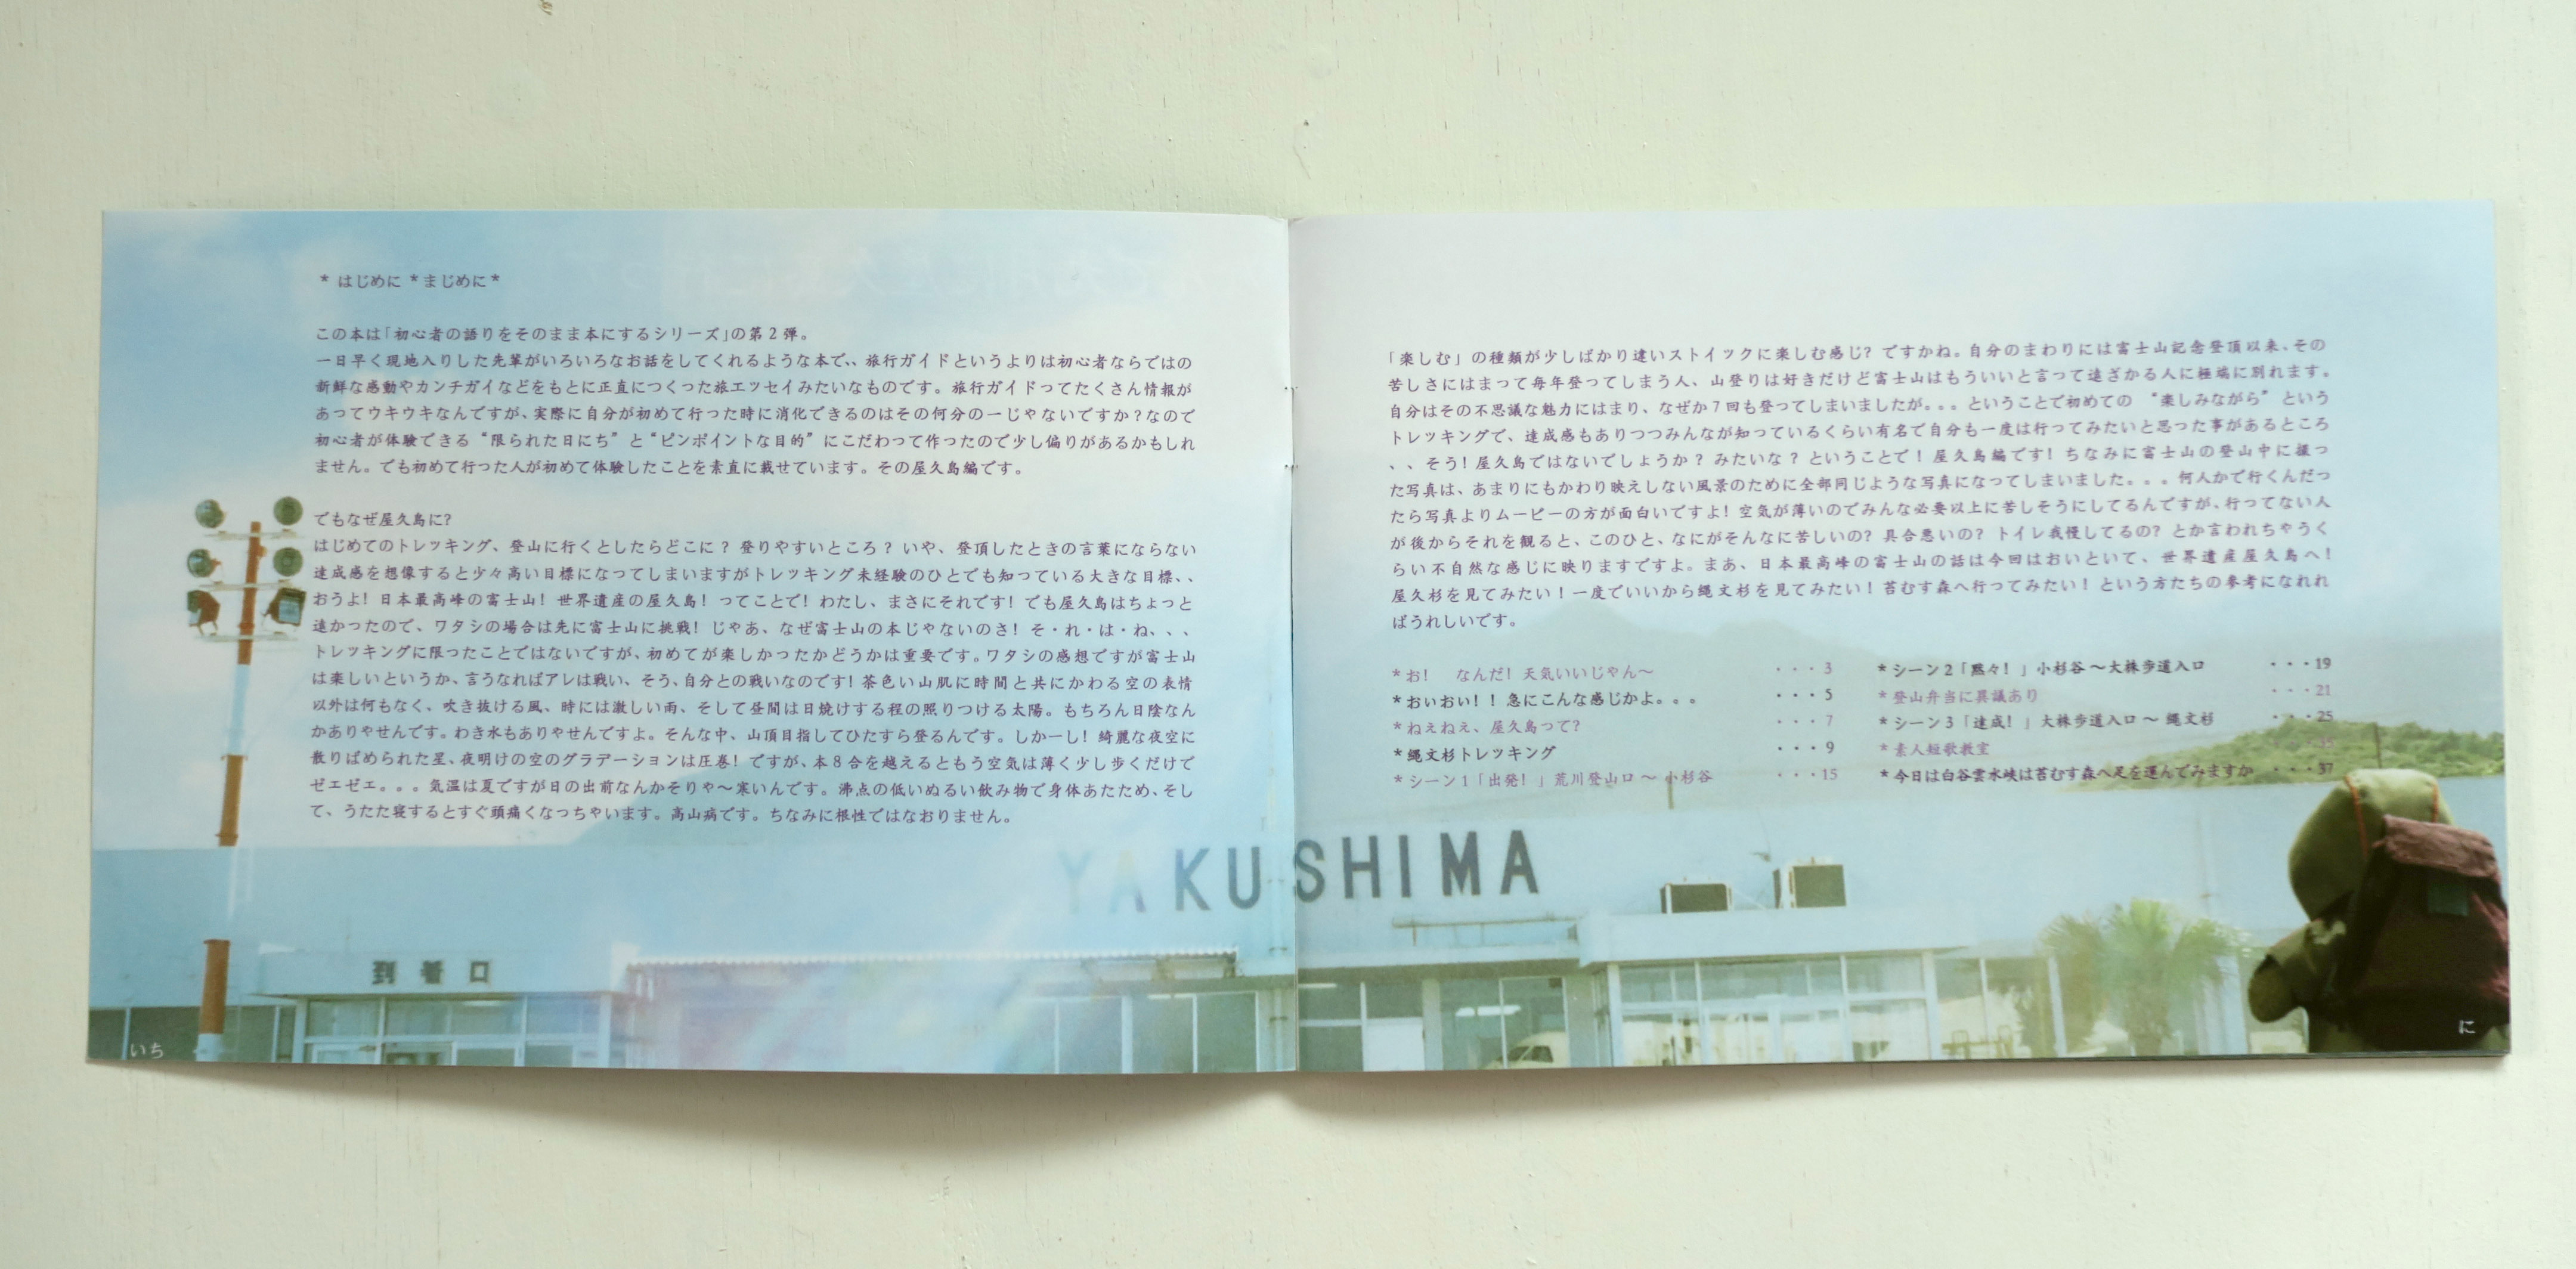 * はじめに *まじめに*
この本は「初心者の語りをそのまま本にするシリーズ」の第2弾。
一日早く現地入りした先輩がいろいろなお話をしてくれるような本で、、旅行ガイドというよりは初心者ならではの
新鮮な感動やカンチガイなどをもとに正直につくった旅エッセイみたいなものです。旅行ガイドってたくさん情報が
あってウキウキなんですが、実際に自分が初めて行った時に消化できるのはその何分の一じゃないですか?なので
初心者が体験できる“限られた日にち”と“ピンポイントな目的”にこだわって作ったので少し偏りがあるかもしれ
ません。でも初めて行った人が初めて体験したことを素直に載せています。その屋久島編です。
でもなぜ屋久島に?
はじめてのトレッキング、登山に行くとしたらどこに?登りやすいところ?いや、登頂したときの言葉にならない
達成感を想像すると少々高い目標になってしまいますがトレッキング未経験のひとでも知っている大きな目標、、
おうよ!日本最高峰の富士山!世界遺産の屋久島!ってことで!わたし、まさにそれです!でも屋久島はちょっと
遠かったので、ワタシの場合は先に富士山に挑戦!じゃあ、なぜ富士山の本じゃないのさ!そ・れ・は・ね、、、
トレッキングに限ったことではないですが、初めてが楽しかったかどうかは重要です。ワタシの感想ですが富士山
は楽しいというか、言うなればアレは戦い、そう、自分との戦いなのです!茶色い山肌に時間と共にかわる空の表情
以外は何もなく、吹き抜ける風、時には激しい雨、そして昼間は日焼けする程の照りつける太陽。もちろん日陰なん
かありやせんです。わき水もありやせんですよ。そんな中、山頂目指してひたすら登るんです。しかーし!綺麗な夜空に
散りばめられた星、夜明けの空のグラデーションは圧巻!ですが、本8合を越えるともう空気は薄く少し歩くだけで
ゼエゼエ。。。気温は夏ですが日の出前なんかそりゃ〜寒いんです。沸点の低いぬるい飲み物で身体あたため、そし
て、うたた寝するとすぐ頭痛くなっちゃいます。高山病です。ちなみに根性ではなおりません。
到着口
いち
「楽しむ」の種類が少しばかり違いストイックに楽しむ感じ?ですかね。自分のまわりには富士山記念登頂以来、その
苦しさにはまって毎年登ってしまう人、山登りは好きだけど富士山はもういいと言って遠ざかる人に極端に別れます。
自分はその不思議な魅力にはまり、なぜか7回も登ってしまいましたが。。。ということで初めての “楽しみながら”という
トレッキングで、達成感もありつつみんなが知っているくらい有名で自分も一度は行ってみたいと思った事があるところ
、、そう!屋久島ではないでしょうか?みたいな?ということで!屋久島編です!ちなみに富士山の登山中に撮っ
た写真は、あまりにもかわり映えしない風景のために全部同じような写真になってしまいました。。。何人かで行くんだっ
たら写真よりムービーの方が面白いですよ!空気が薄いのでみんな必要以上に苦しそうにしてるんですが、行ってない人
が後からそれを観ると、このひと、なにがそんなに苦しいの?具合悪いの?トイレ我慢してるの?とか言われちゃうく
らい不自然な感じに映りますですよ。まあ、日本最高峰の富士山の話は今回はおいといて、世界遺産屋久島へ!
屋久杉を見てみたい!一度でいいから縄文杉を見てみたい!苔むす森へ行ってみたい!という方たちの参考になれれ
ばうれしいです。
*お! なんだ!天気いいじゃん〜 ・・・3
*おいおい!!急にこんな感じかよ。。。 ・・・5
*ねえねえ、屋久島って? ・・・7
*縄文杉トレッキング ・・・9
*シーン1「出発!」荒川登山口〜小杉谷 ・・・15
*シーン2「黙々!」小杉谷〜大株歩道入口 ・・・19
*登山弁当に異議あり ・・・21
*シーン3「達成!」大株歩道入口〜縄文杉 ・・・25
*素人短歌教室
*今日は白谷雲水峡は苔むす森へ足を運んでみますか ・・・37
YAKUSHIMA
に